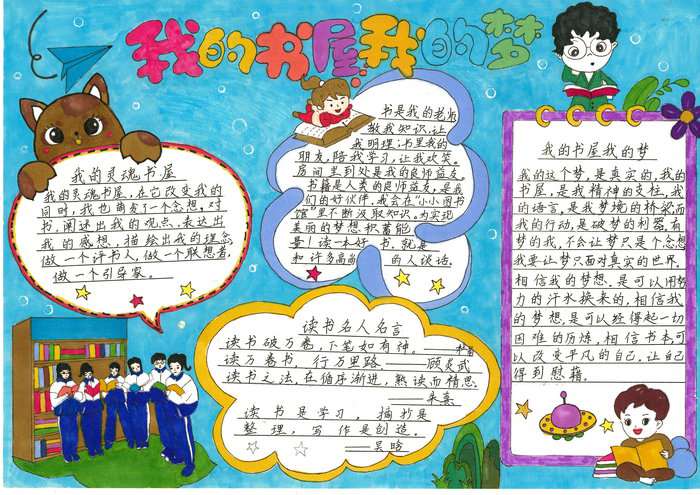 我的书屋我的梦
我的灵魂书屋
我的灵魂书屋,在它改变我的
同时,我也萌发了一个念想,对
书,阐述出我的观点,表达出
我的感想,描绘出我的理念
做一个评书人,做一个联想者,
做一个引导家。
书是我的老师
教我知识,让
我明理;书里我的
朋友,陪我学习,让我欢笑。
房间里到处是我的良师益友。
书籍是人类的良师益友,是我
们的好伙伴,我会在“小小图书
馆”里不断汲取知识。为实现
美丽的梦想,积蓄能
量!读一本好书,就是
和许多高尚的人谈话。
读书名人名言
读书破万卷,下笔如有神。——杜甫
读万卷书,行万里路——顾炎武
读书之法,在循序渐进,熟读而精思。
——朱熹
读书是学习,摘抄是
整理,写作是创造。
——吴晗
我的书屋我的梦
我的这个梦,是真实的,我的
书屋,是我精神的支柱,我
的语言,是我梦境的桥梁而
我的行动,是破梦的利器,有
梦的我,不会让梦只是个念想
我要让梦只面对真实的世界。
相信我的梦想,是可以用努
力的汗水换来的,相信我
的梦想,是可以经得起一切
困难的历炼,相信书本可
以改变平凡的自己,让自己
得到慰藉。